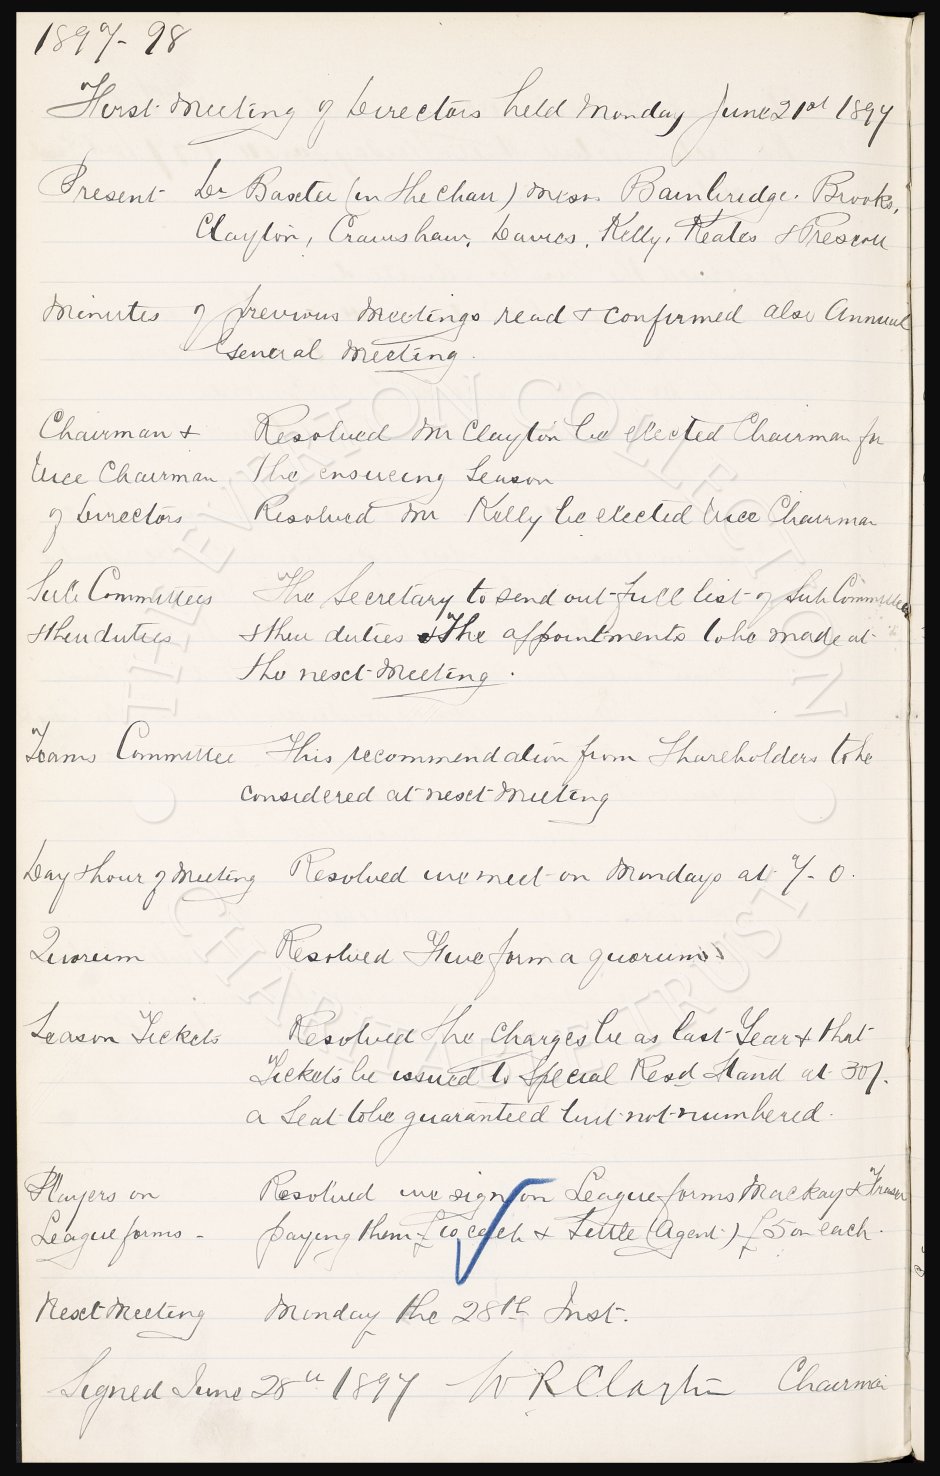 1897-98
First Meeting of Directors held Monday June 21st 1897
Present Dr Baxter (in the Chair) Messrs Bainbridge. Brooks,
Clayton, Crawshaw, Davies, Kelly, Keates & Prescott
Minutes of previous Meetings read & confirmed also Annual
General Meeting.
Chairman & Resolved Mr Clayton be elected Chairman for
Vice Chairman the ensueing Season
of Directors Resolved Mr Kelly be elected Vice Chairman
Sub Committees The Secretary to send out full list of Sub Committees
& their duties & their duties & The appointments to be made at
the next Meeting.
Teams Committee This recommendation from Shareholders to be
considered at next Meeting
Day & hour of Meeting Resolved we meet on Mondays at 7-0.
Quoreum Resolved Five form a quorum
Season Tickets Resolved the Charges be as last Year & that
Tickets be issued to Special Resd Stand at 30/-
a Seat to be guaranteed but not numbered.
Players on Resolved we sign on League forms Mackay & Fraser
League forms - paying them £10 each & Little (Agent) £5 on each.
Next Meeting Monday the 28th Inst.
Signed June 28th 1897 W R Clayton Chairman
THE EVERTON COLLECTION
CHARITABLE TRUST